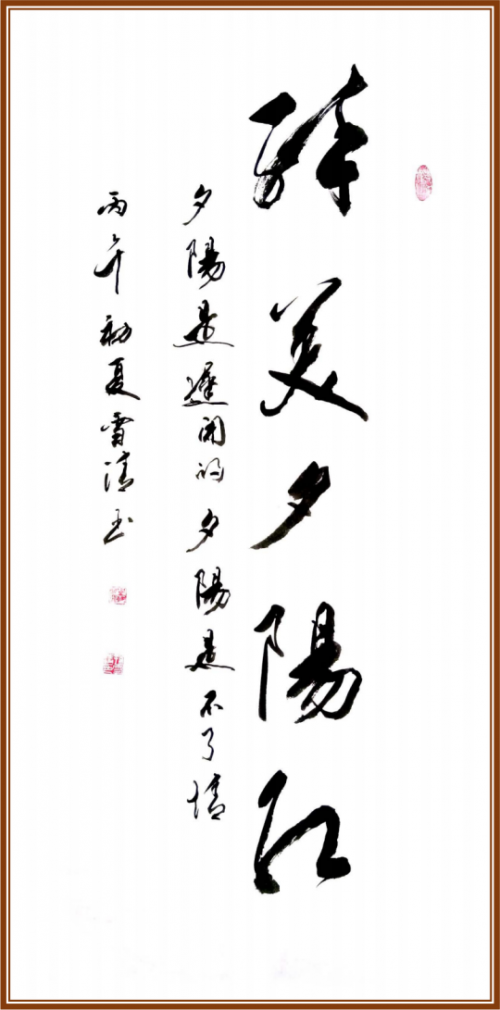 醉美夕陽紅
夕陽是遲開的夕陽是不了情
丙午初夏雪清